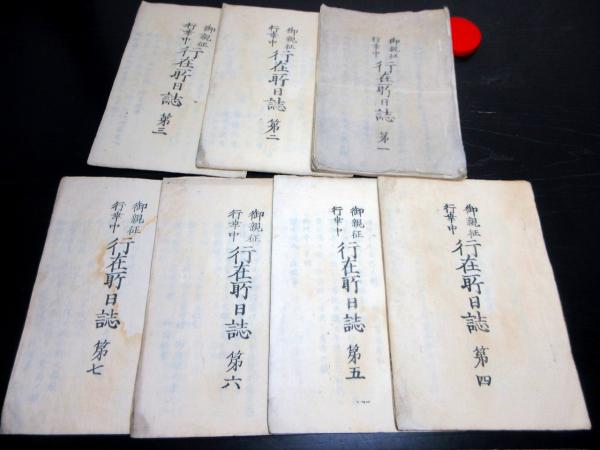 御親征
行幸中
行在所日誌
第一
御親征
行幸中
行在所日誌
第二
御親征
行幸中
行在所日誌
第三
御親征
行幸中
行在所日誌
第四
御親征
行幸中
行在所日誌
第五
御親征
行幸中
行在所日誌
第六
御親征
行幸中
行在所日誌
第七